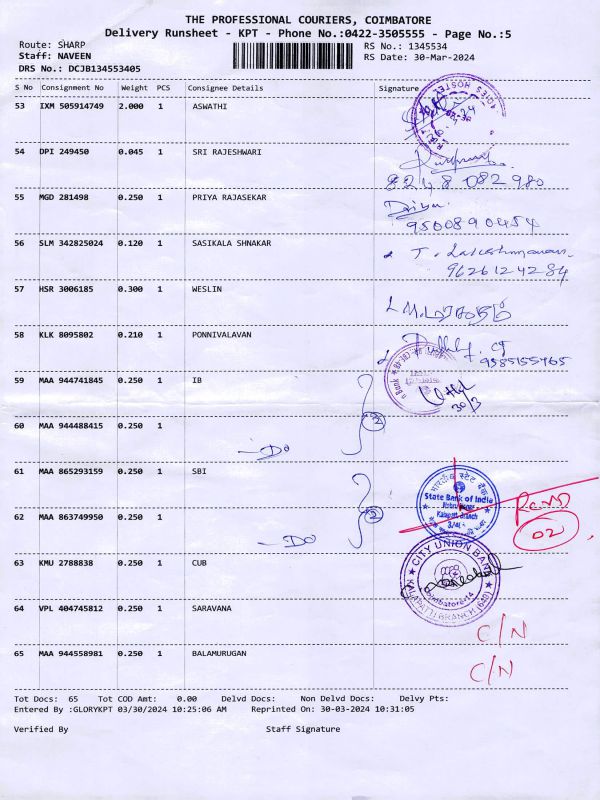 THE PROFESSIONAL COURIERS, COIMBATORE
Delivery Runsheet - KPT - Phone No.:0422-3505555 - Page No.:5
Route: SHARP RS No.: 1345534
Staff: NAVEEN RS Date: 30-Mar-2024
DRS No.: DCJB134553405
S No Consignment No Weight PCS Consignee Details Signature
53 IXM 505914749 2.000 1 ASWATHI
54 DPI 249450 0.045 1 SRI RAJESHWARI
8248 082 980
55 MGD 281498 0.250 1 PRIYA RAJASEKAR
9500890454
56 SLM 342825024 0.120 1 SASIKALA SHNAKAR
9626124284
57 HSR 3006185 0.300 1 WESLIN
58 KLK 8095802 0.210 1 PONNIVALAVAN
9585155765
59 MAA 944741845 0.250 1 IB
30/3
60 MAA 944488415 0.250 1 2
Do
61 MAA 865293159 0.250 1 SBI
भारतीय स्टेट बैंक
State Bank of India
Kalapatti Branch
02
62 MAA 863749950 0.250 1 2
Do
63 KMU 2788838 0.250 1 CUB
CITY UNION BANK
Coimbatore-14
KALAPATTI BRANCH (640)
64 VPL 404745812 0.250 1 SARAVANA
C/N
65 MAA 944558981 0.250 1 BALAMURUGAN
C/N
Tot Docs: 65 Tot COD Amt: 0.00 Delvd Docs: Non Delvd Docs: Delvy Pts:
Entered By :GLORYKPT 03/30/2024 10:25:06 AM Reprinted On: 30-03-2024 10:31:05
Verified By Staff Signature